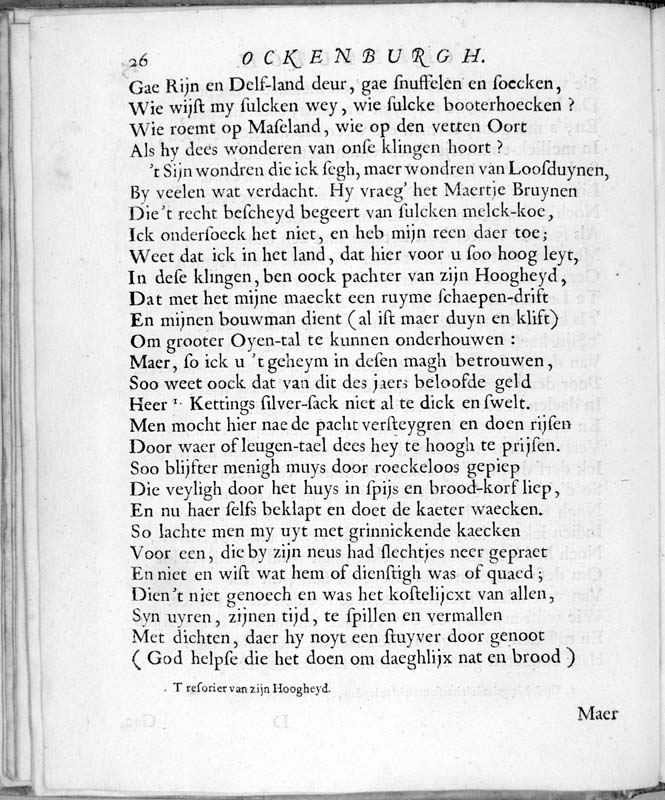 26 OCKENBURGH.
Gae Rijn en Delf-land deur, gae ſnuffelen en ſoecken,
Wie wijſt my ſulcken wey, wie ſulcke booterhoecken ?
Wie roemt op Maſeland, wie op den vetten Oort
Als hy dees wonderen van onſe klingen hoort ?
't Sijn wondren die ick ſegh, maer wondren van Looſduynen,
By veelen wat verdacht. Hy vraeg' het Maertje Bruynen
Die 't recht beſcheyd begeert van ſulcken melck-koe,
Ick onderſoeck het niet, en heb mijn reen daer toe;
Weet dat ick in het land, dat hier voor u ſoo hoog leyt,
In deſe klingen, ben oock pachter van zijn Hoogheyd,
Dat met het mijne maeckt een ruyme ſchaepen-drift
En mijnen bouwman dient (al iſt maer duyn en klift)
Om grooter Oyen-tal te kunnen onderhouwen :
Maer, ſo ick u 't geheym in deſen magh betrouwen,
Soo weet oock dat van dit des jaers beloofde geld
Heer 1. Kettings ſilver-ſack niet al te dick en ſwelt.
Men mocht hier nae de pacht verſteygren en doen rijſen
Door waer of leugen-tael dees hey te hoogh te prijſen.
Soo blijfter menigh muys door roeckeloos gepiep
Die veyligh door het huys in ſpijs en brood-korf liep,
En nu haer ſelfs beklapt en doet de kaeter waecken.
So lachte men my uyt met grinnickende kaecken
Voor een, die by zijn neus had ſlechtjes neer gepraet
En niet en wiſt wat hem of dienſtigh was of quaed ;
Dien't niet genoech en was het koſtelijcxt van allen,
Syn uyren, zijnen tijd, te ſpillen en vermallen
Met dichten, daer hy noyt een ſtuyver door genoot
( God helpſe die het doen om daeghlijx nat en brood )
. Treſorier van zijn Hoogheyd.
Maer